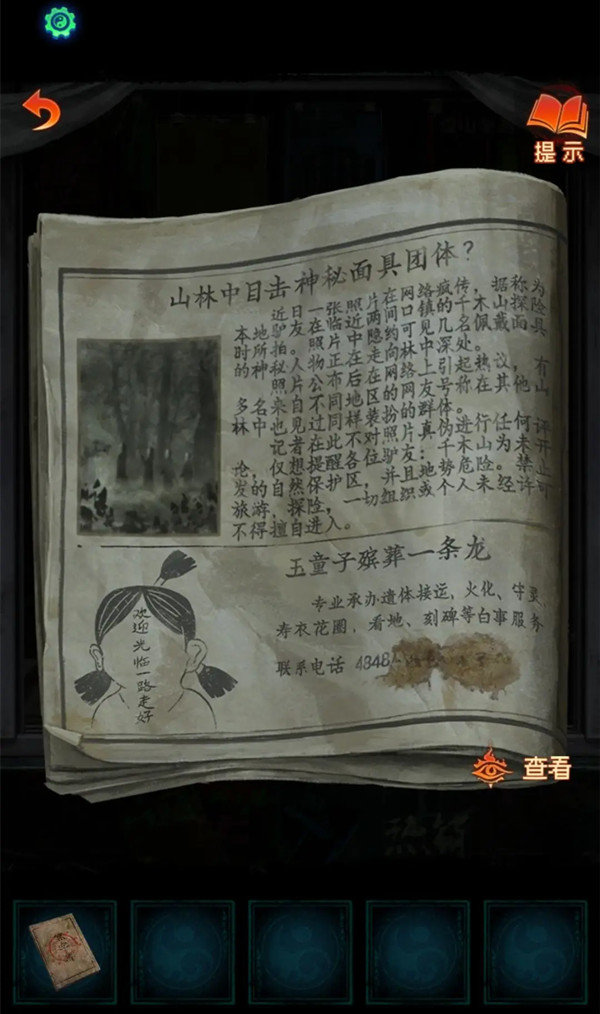 提示
山林中目击神秘面具团体？
近日一张照片在网络疯传，据称为
本地驴友在临近两间口镇的千木山探险
时所拍。照片中隐约可见几名佩戴面具
的神秘人物正走向林中深处。
照片公布后在网络上引起热议，有
多名来自不同地区的网友号称在其他山
林中也见过同样装扮的群体。
记者在此不对照片真伪进行任何评
论，仅想提醒各位驴友：千木山为未开
发的自然保护区，并且地势危险。禁止
旅游、探险，一切组织或个人未经许可
不得擅自进入。
玉童子殡葬一条龙
专业承办遗体接运，火化、守灵、
寿衣花圈，看地、刻碑等白事服务
联系电话 4848
欢迎光临一路走好
查看